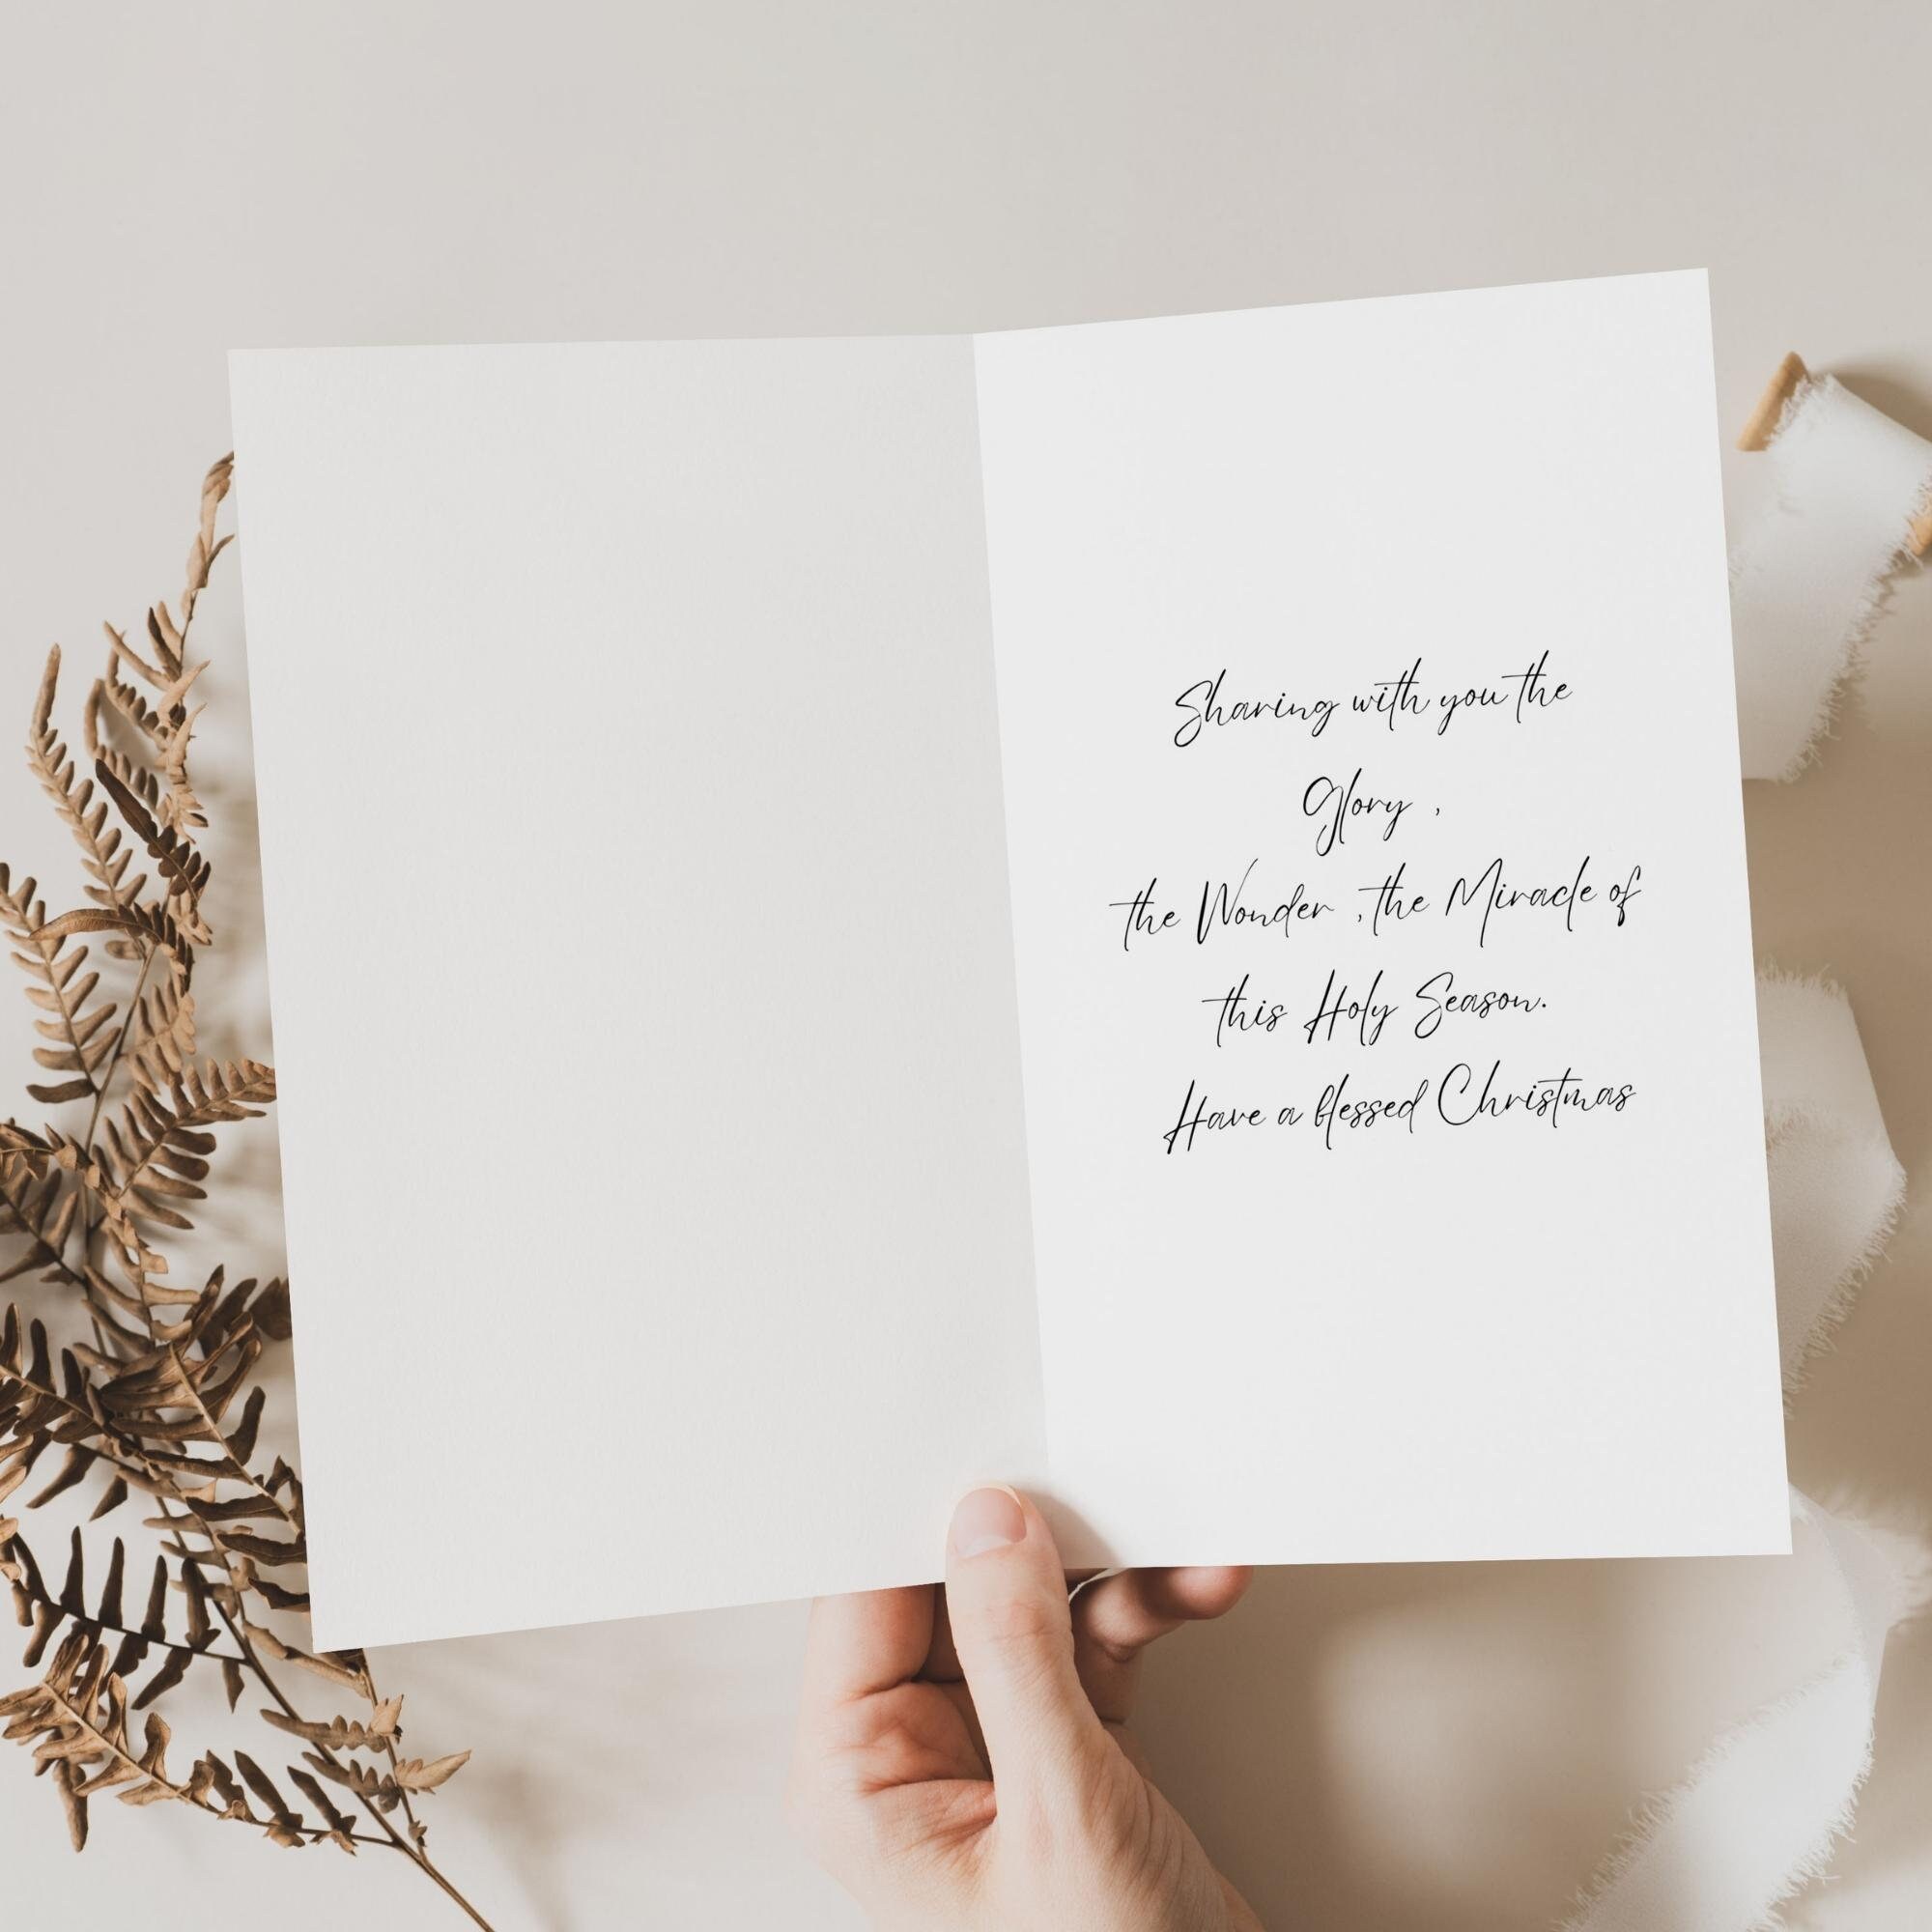 Sharing with you the
Glory ,
the Wonder , the Miracle of
this Holy Season.
Have a blessed Christmas